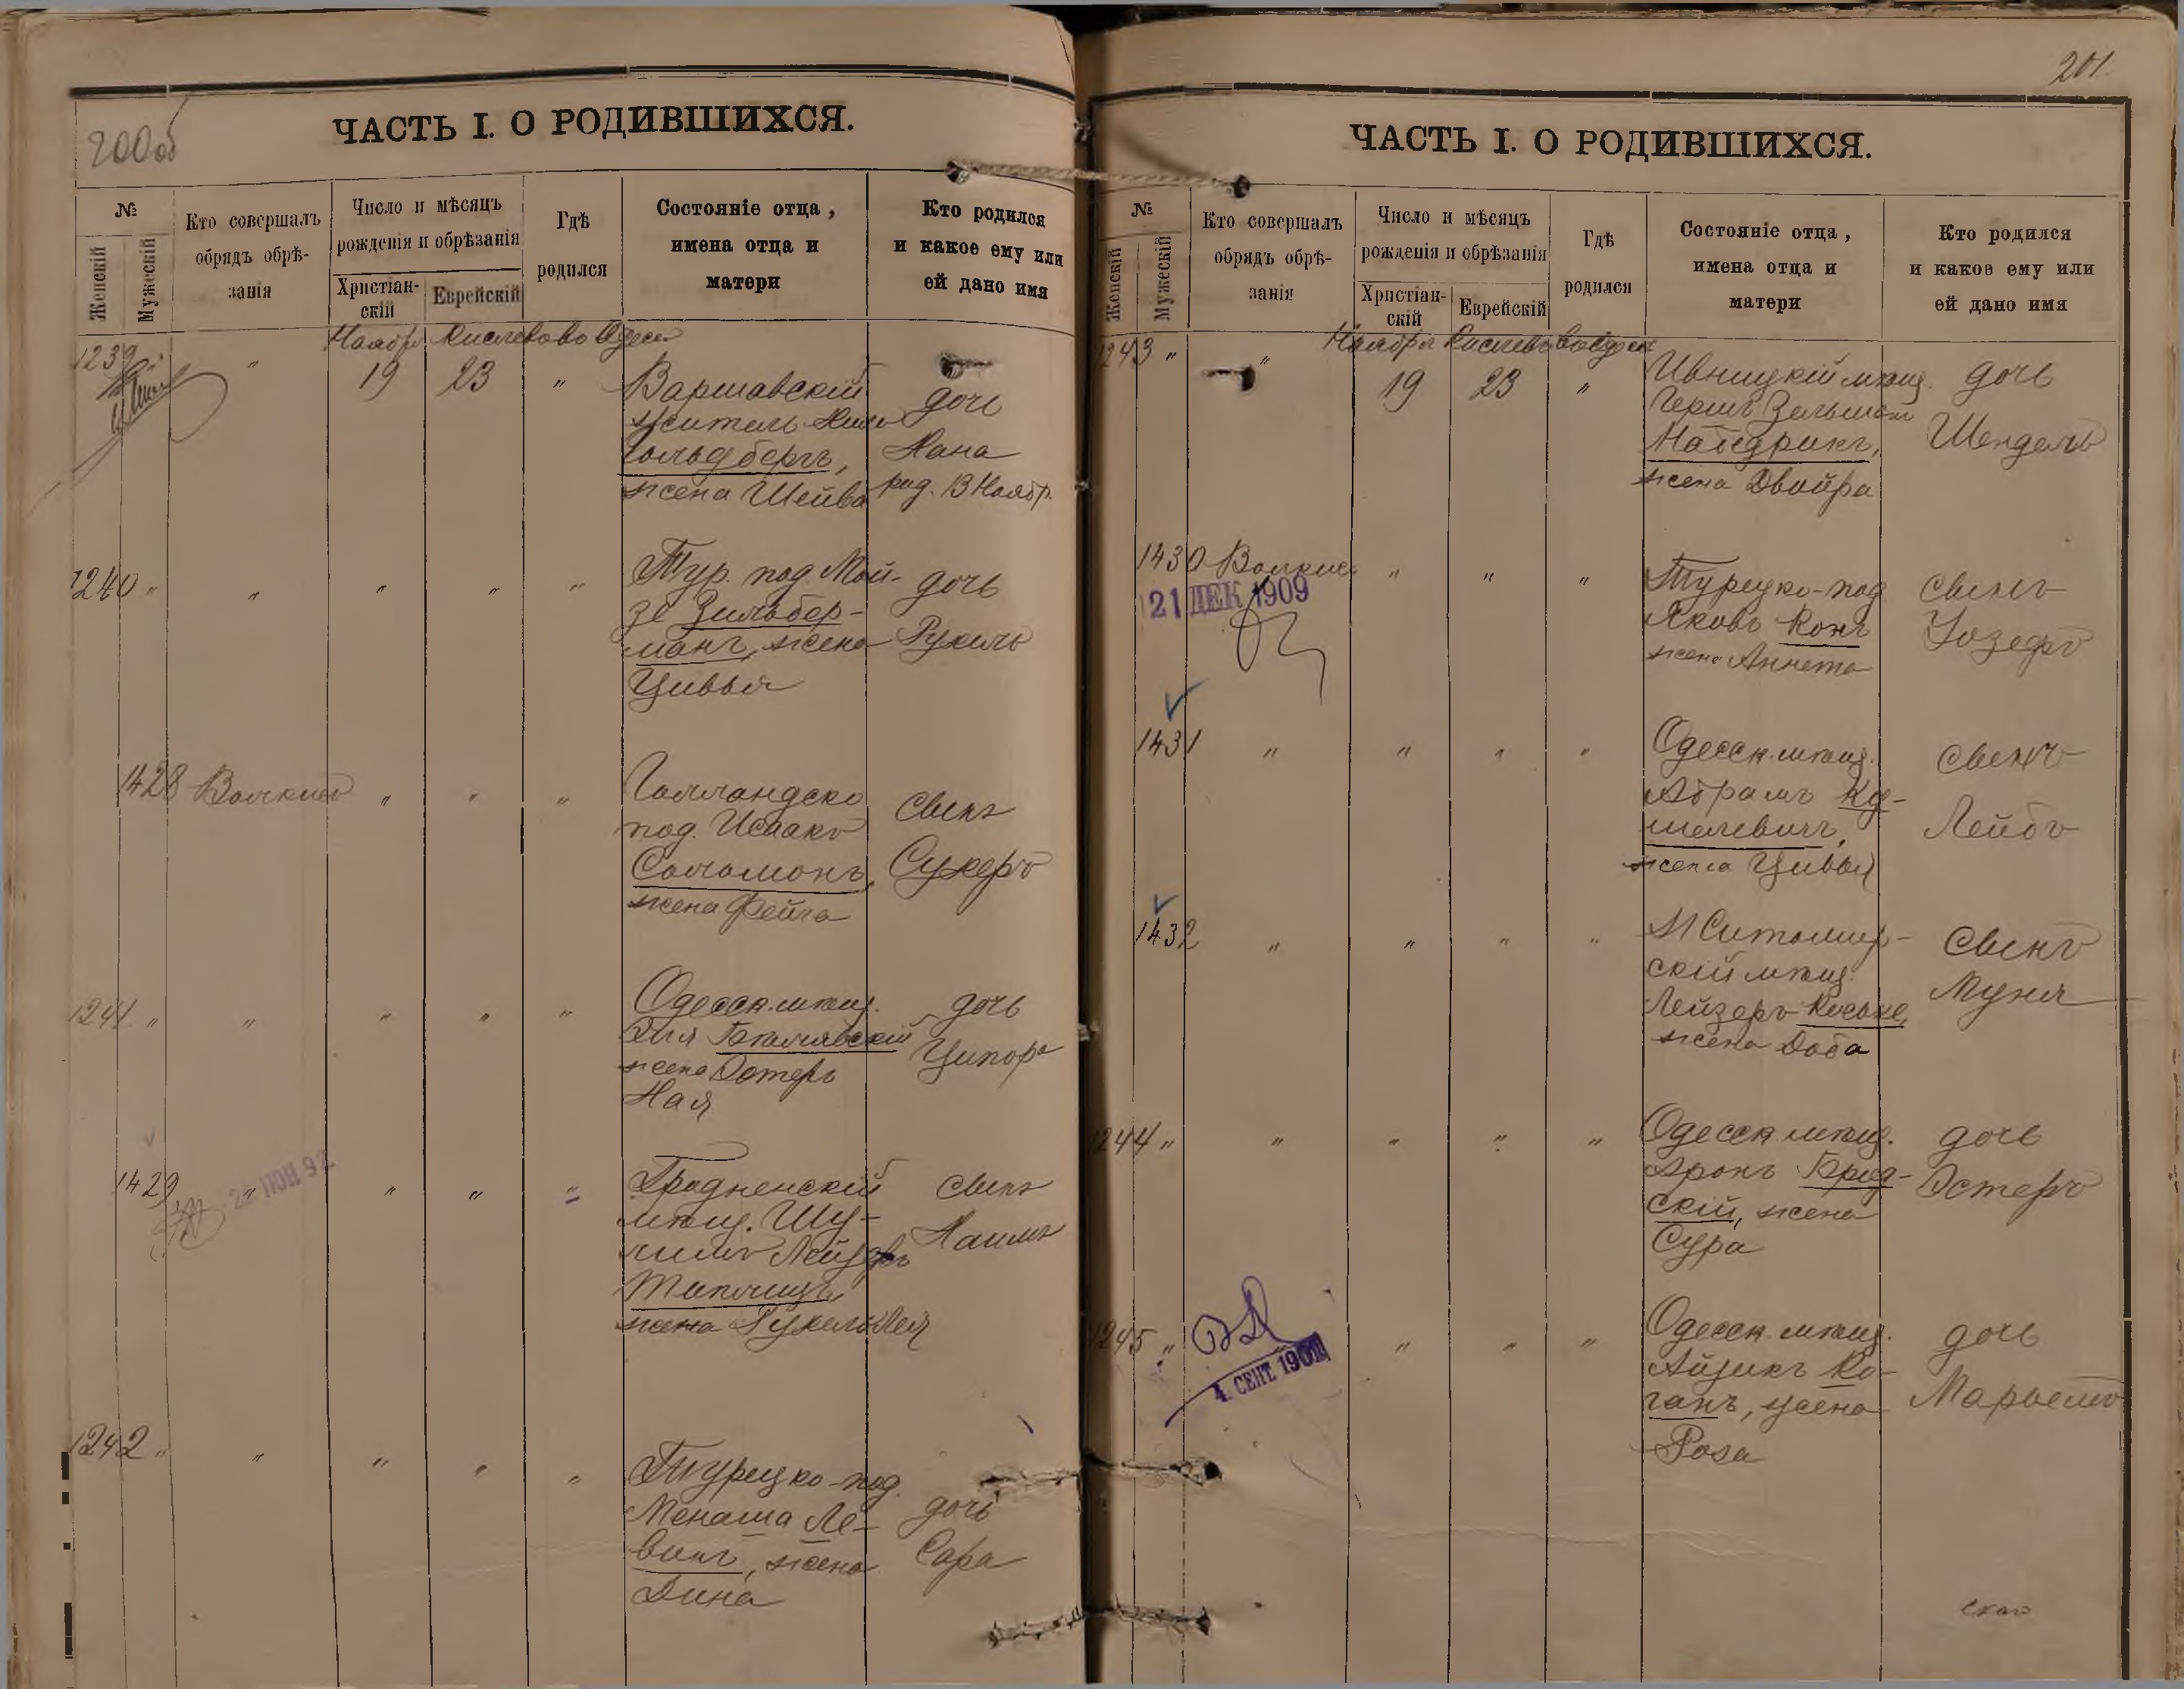 200об
ЧАСТЬ I. О РОДИВШИХСЯ.
№
Женскій
Мужескій
Кто совершалъ
обрядъ обрѣ-
занія
Число и мѣсяцъ
рожденія и обрѣзанія
Христіан-
скій
Еврейскій
Гдѣ
родился
Состояніе отца,
имена отца и
матери
Кто родился
и какое ему или
ей дано имя
Ноября Кислева во Одессѣ
1239 " " 19 23 "
Варшавскій
житель
Гольдбергъ,
жена Шейва
дочь
Хана
род. 13 Ноябр.
1240 " " " " "
Тур. под. Мой-
зе Зильбер-
манъ, жена
Цивья
дочь
Рухель
1428 " " "
Голландско
под. Исаакъ
Соломонъ,
жена Фейга
сынъ
Сухеръ
1241 " " " " "
Одесск. мѣщ.
Эля
жена Эстеръ
Хая
дочь
Ципора
1429 " 28 ІЮН 92 " " "
Гродненскій
мѣщ. Шу-
лимъ Лейзеръ
Тикницкъ,
жена Рухель Лея
сынъ
Хаимъ
1242 " " " " "
Турецко-под.
Менаша Ле-
винъ, жена
Дина
дочь
Сара
201.
ЧАСТЬ I. О РОДИВШИХСЯ.
№
Женскій
Мужескій
Кто совершалъ
обрядъ обрѣ-
занія
Число и мѣсяцъ
рожденія и обрѣзанія
Христіан-
скій
Еврейскій
Гдѣ
родился
Состояніе отца,
имена отца и
матери
Кто родился
и какое ему или
ей дано имя
Ноября Кислева во Одессѣ
1243 " " 19 23 "
Ивницкій мѣщ.
Гершъ Зельманъ
Найдрикъ,
жена Двойра
дочь
Шендель
1430 " " "
21 ДЕК 1909
Турецко-под
Яковъ Конъ
жена Аннета
сынъ
Іозефъ
1431 " " " "
Одесск. мѣщ.
Абрамъ Ку-
шелевичъ,
жена Цивья
сынъ
Лейбъ
1432 " " " "
Житомир-
скій мѣщ.
Лейзеръ
жена Доба
сынъ
Муня
1244 " " " " "
Одесск. мѣщ.
Аронъ Брод-
скій, жена
Сура
дочь
Эстеръ
1245 " " " "
4. СЕНТ. 190
Одесск. мѣщ.
Айзикъ Ко-
ганъ, жена
Роза
дочь
Марьемъ